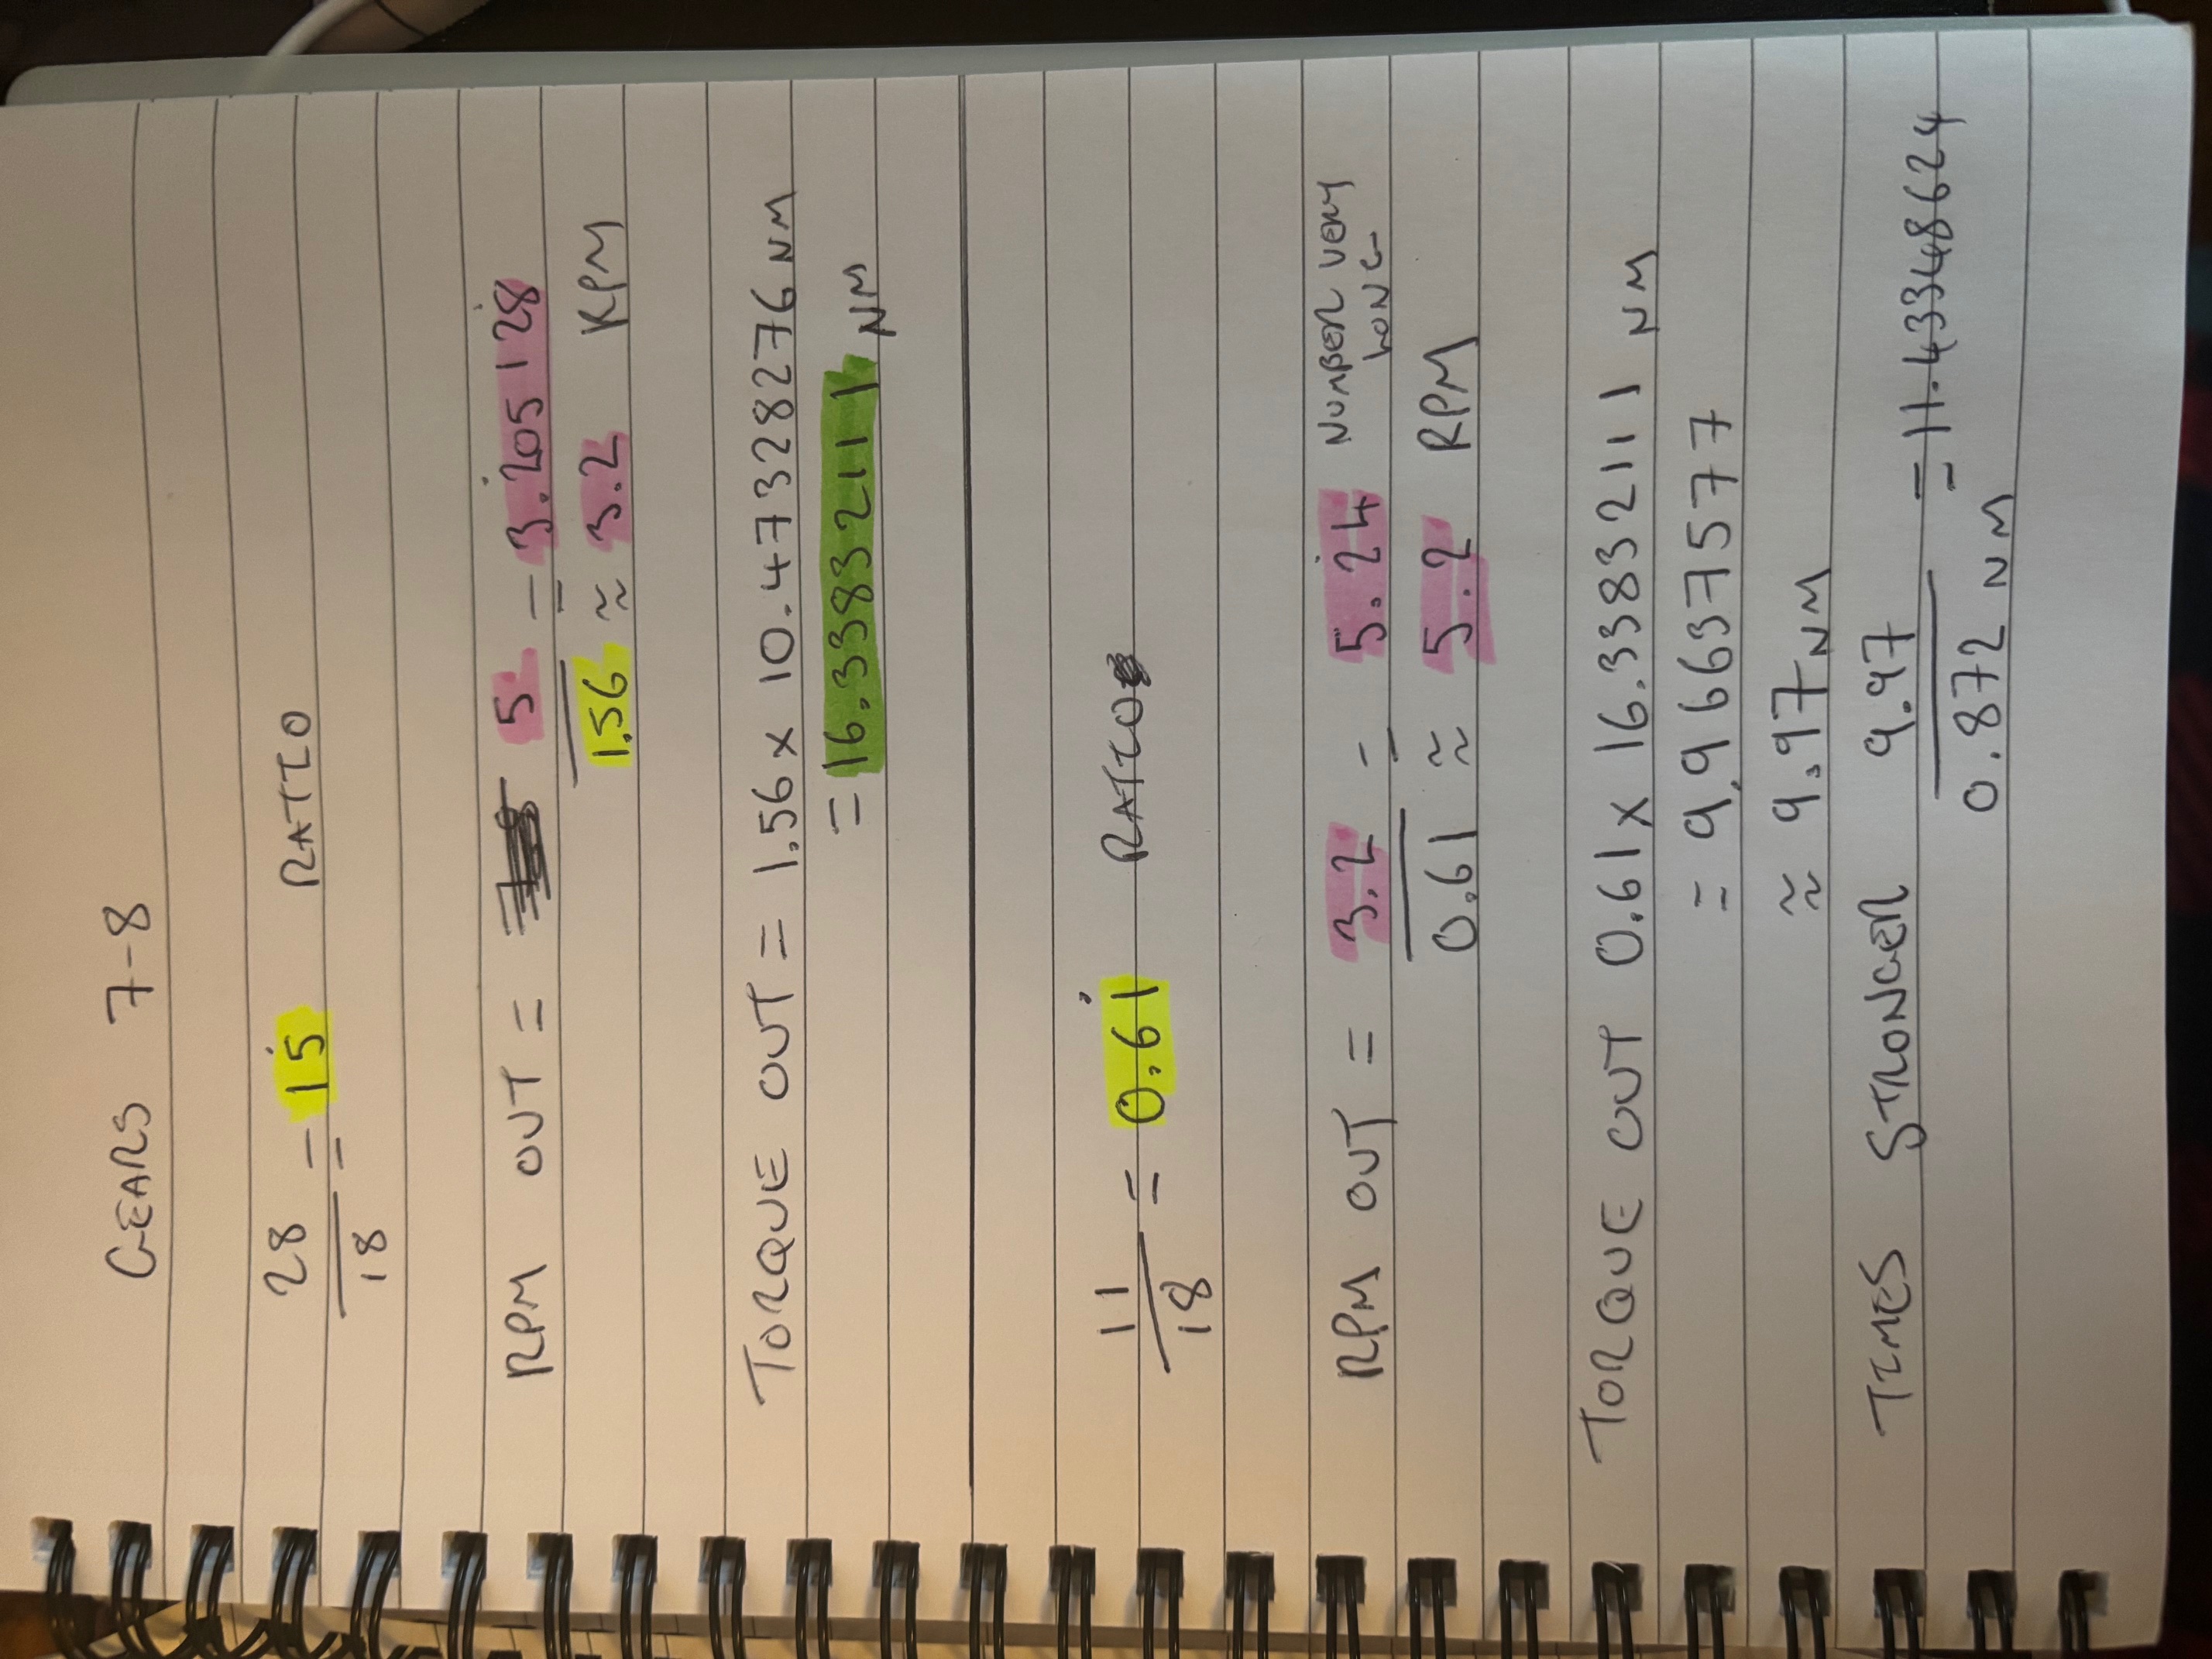 GEARS 7-8
28/18 = 1̇5 RATIO
RPM OUT = 5/1.56 = 3.2̇05128̇
≈ 3.2 RPM
TORQUE OUT = 1.56 x 10.47328276 NM
= 16.33832111 NM
11/18 = 0.61̇ RATIO
RPM OUT = 3.2/0.61 = 5.2̇4 NUMBER VERY LONG
≈ 5.2 RPM
TORQUE OUT 0.61 x 16.33832111 NM
= 9.96637577
≈ 9.97 NM
TIMES STRONGER 9.97/0.872 NM = 11.43348624